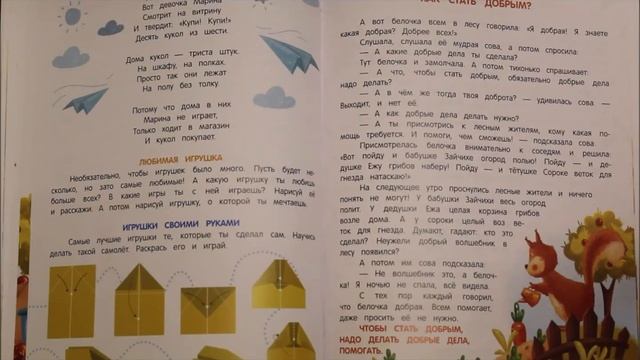 Вот девочка Марина
Смотрит на витрину
И твердит: «Купи! Купи!»
Десять кукол из шести.
Дома кукол — триста штук.
На шкафу, на полках.
Просто так они лежат
На полу без толку.
Потому что дома в них
Марина не играет,
Только ходит в магазин
И кукол покупает.
ЛЮБИМАЯ ИГРУШКА
Необязательно, чтобы игрушек было много. Пусть будет не-
сколько, но зато любимые! А какую игрушку ты любишь
больше всех? В какие игры ты с ней играешь? Нарисуй её
и расскажи. А потом нарисуй игрушку, о которой ты мечтаешь.
ИГРУШКИ СВОИМИ РУКАМИ
Самые лучшие игрушки те, которые ты сделал сам. Научись
делать такой самолёт. Раскрась его и играй.
КАК СТАТЬ ДОБРЫМ?
А вот белочка всем в лесу говорила: «Я добрая! Я знаете
какая добрая? Добрее всех!»
Слушала, слушала её мудрая сова, а потом спросила:
— А какие добрые дела ты сделала?
Тут белочка и замолчала. А потом тихонько спрашивает:
— А что, чтобы стать добрым, обязательно добрые дела
надо делать?
— А в чём же тогда твоя доброта? — удивилась сова —
Выходит, и нет её.
— А как добрые дела делать нужно?
— А ты присмотрись к лесным жителям, кому какая по-
мощь требуется. И помоги, чем сможешь! — подсказала сова.
Присмотрелась белочка внимательно к соседям и решила:
«Вот пойду и бабушке Зайчихе огород полью! Пойду — и де-
душке Ежу грибов наберу! Пойду — и тётушке Сороке веток для
гнезда натаскаю!»
На следующее утро проснулись лесные жители и ничего
понять не могут! У бабушки Зайчихи весь огород
полит. У дедушки Ежа целая корзина грибов
возле дома. А у сороки целый воз ве-
ток для гнезда. Думают, гадают: кто это
сделал? Неужели добрый волшебник в
лесу появился?
А потом им сова подсказала:
— Не волшебник это, а белоч-
ка! Я ночью не спала, всё видела.
С тех пор каждый говорил,
что белочка добрая. Всем помогает,
даже просить её не нужно.
ЧТОБЫ СТАТЬ ДОБРЫМ,
НАДО ДЕЛАТЬ ДОБРЫЕ ДЕЛА,
ПОМОГАТЬ.